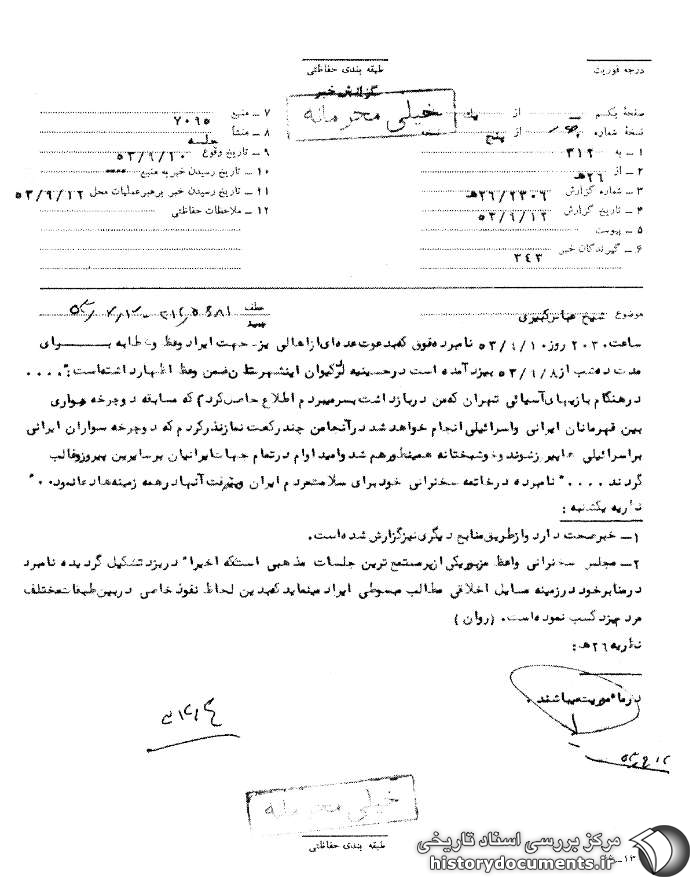 درجه فوریت
طبقه بندی حفاظتی
گزارش خبر
خیلی محرمانه
صفحهٔ یکم از
نسخهٔ شماره از پنج نسخه
۱ – به ۳۱۲
۲ – از ۲۶ه‍
۳ – شماره گزارش ۲۶/۲۳۰۶ه‍
۴ – تاریخ گزارش ۵۳/۹/۱۲
۵ – پیوست
۶ – گیرندگان خبر ۳۴۳
۷ – منبع ۷۰۹۵
۸ – منشأ جلسه
۹ – تاریخ وقوع ۵۳/۹/۱۰
۱۰ – تاریخ رسیدن خبر به منبع
۱۱ – تاریخ رسیدن خبر برهبر عملیات محل ۵۳/۹/۱۲
۱۲ – ملاحظات حفاظتی
موضوع شیخ عباس کبیری
عطف
ساعت ۲۰۳۰ روز ۵۳/۹/۱۰ نامبرده فوق که بدعوت عده‌ای از اهالی یزد جهت ایراد وعظ و خطابه بـــرای
مدت ده شب از ۵۳/۹/۸ بیزد آمده است در حسینیه اینشهرستان ضمن وعظ اظهار داشته است: "....
در هنگام بازیهای آسیائی تهران که من در بازداشت بسر میبردم اطلاع حاصل کردم که مسابقه دوچرخه سواری
بین قهرمانان ایرانی و اسرائیلی انجام خواهد شد در آنجا من چند رکعت نماز نذر کردم که دوچرخه سواران ایرانی
بر اسرائیلی ها پیروز شوند و خوشبختانه همینطور هم شد و امیدوارم در تمام جهات ایرانیان بر سایرین پیروز و غالب
گردند ...." نامبرده در خاتمه سخنرانی خود برای سلامت مردم ایران و پیشرفت آنها در همه زمینه‌ها دعا نمود.
نظریه یکشنبه :
۱ – خبر صحت دارد و از طریق منابع دیگری نیز گزارش شده است.
۲ – مجلس سخنرانی واعظ مزبور یکی از پر مستمع ترین جلسات مذهبی است که اخیرا" در یزد تشکیل گردیده نامبرده
در منابر خود در زمینه مسایل اخلاقی مطالب مبسوطی ایراد مینماید که بدین لحاظ نفوذ خاصی در بین طبقات مختلف
مردم یزد کسب نموده است. (روان)
نظریه ۲۶ه‍ :
در مأموریت میباشند .
خیلی محرمانه
طبقه بندی حفاظتی
مرکز بررسی اسناد تاریخی
historydocuments.ir